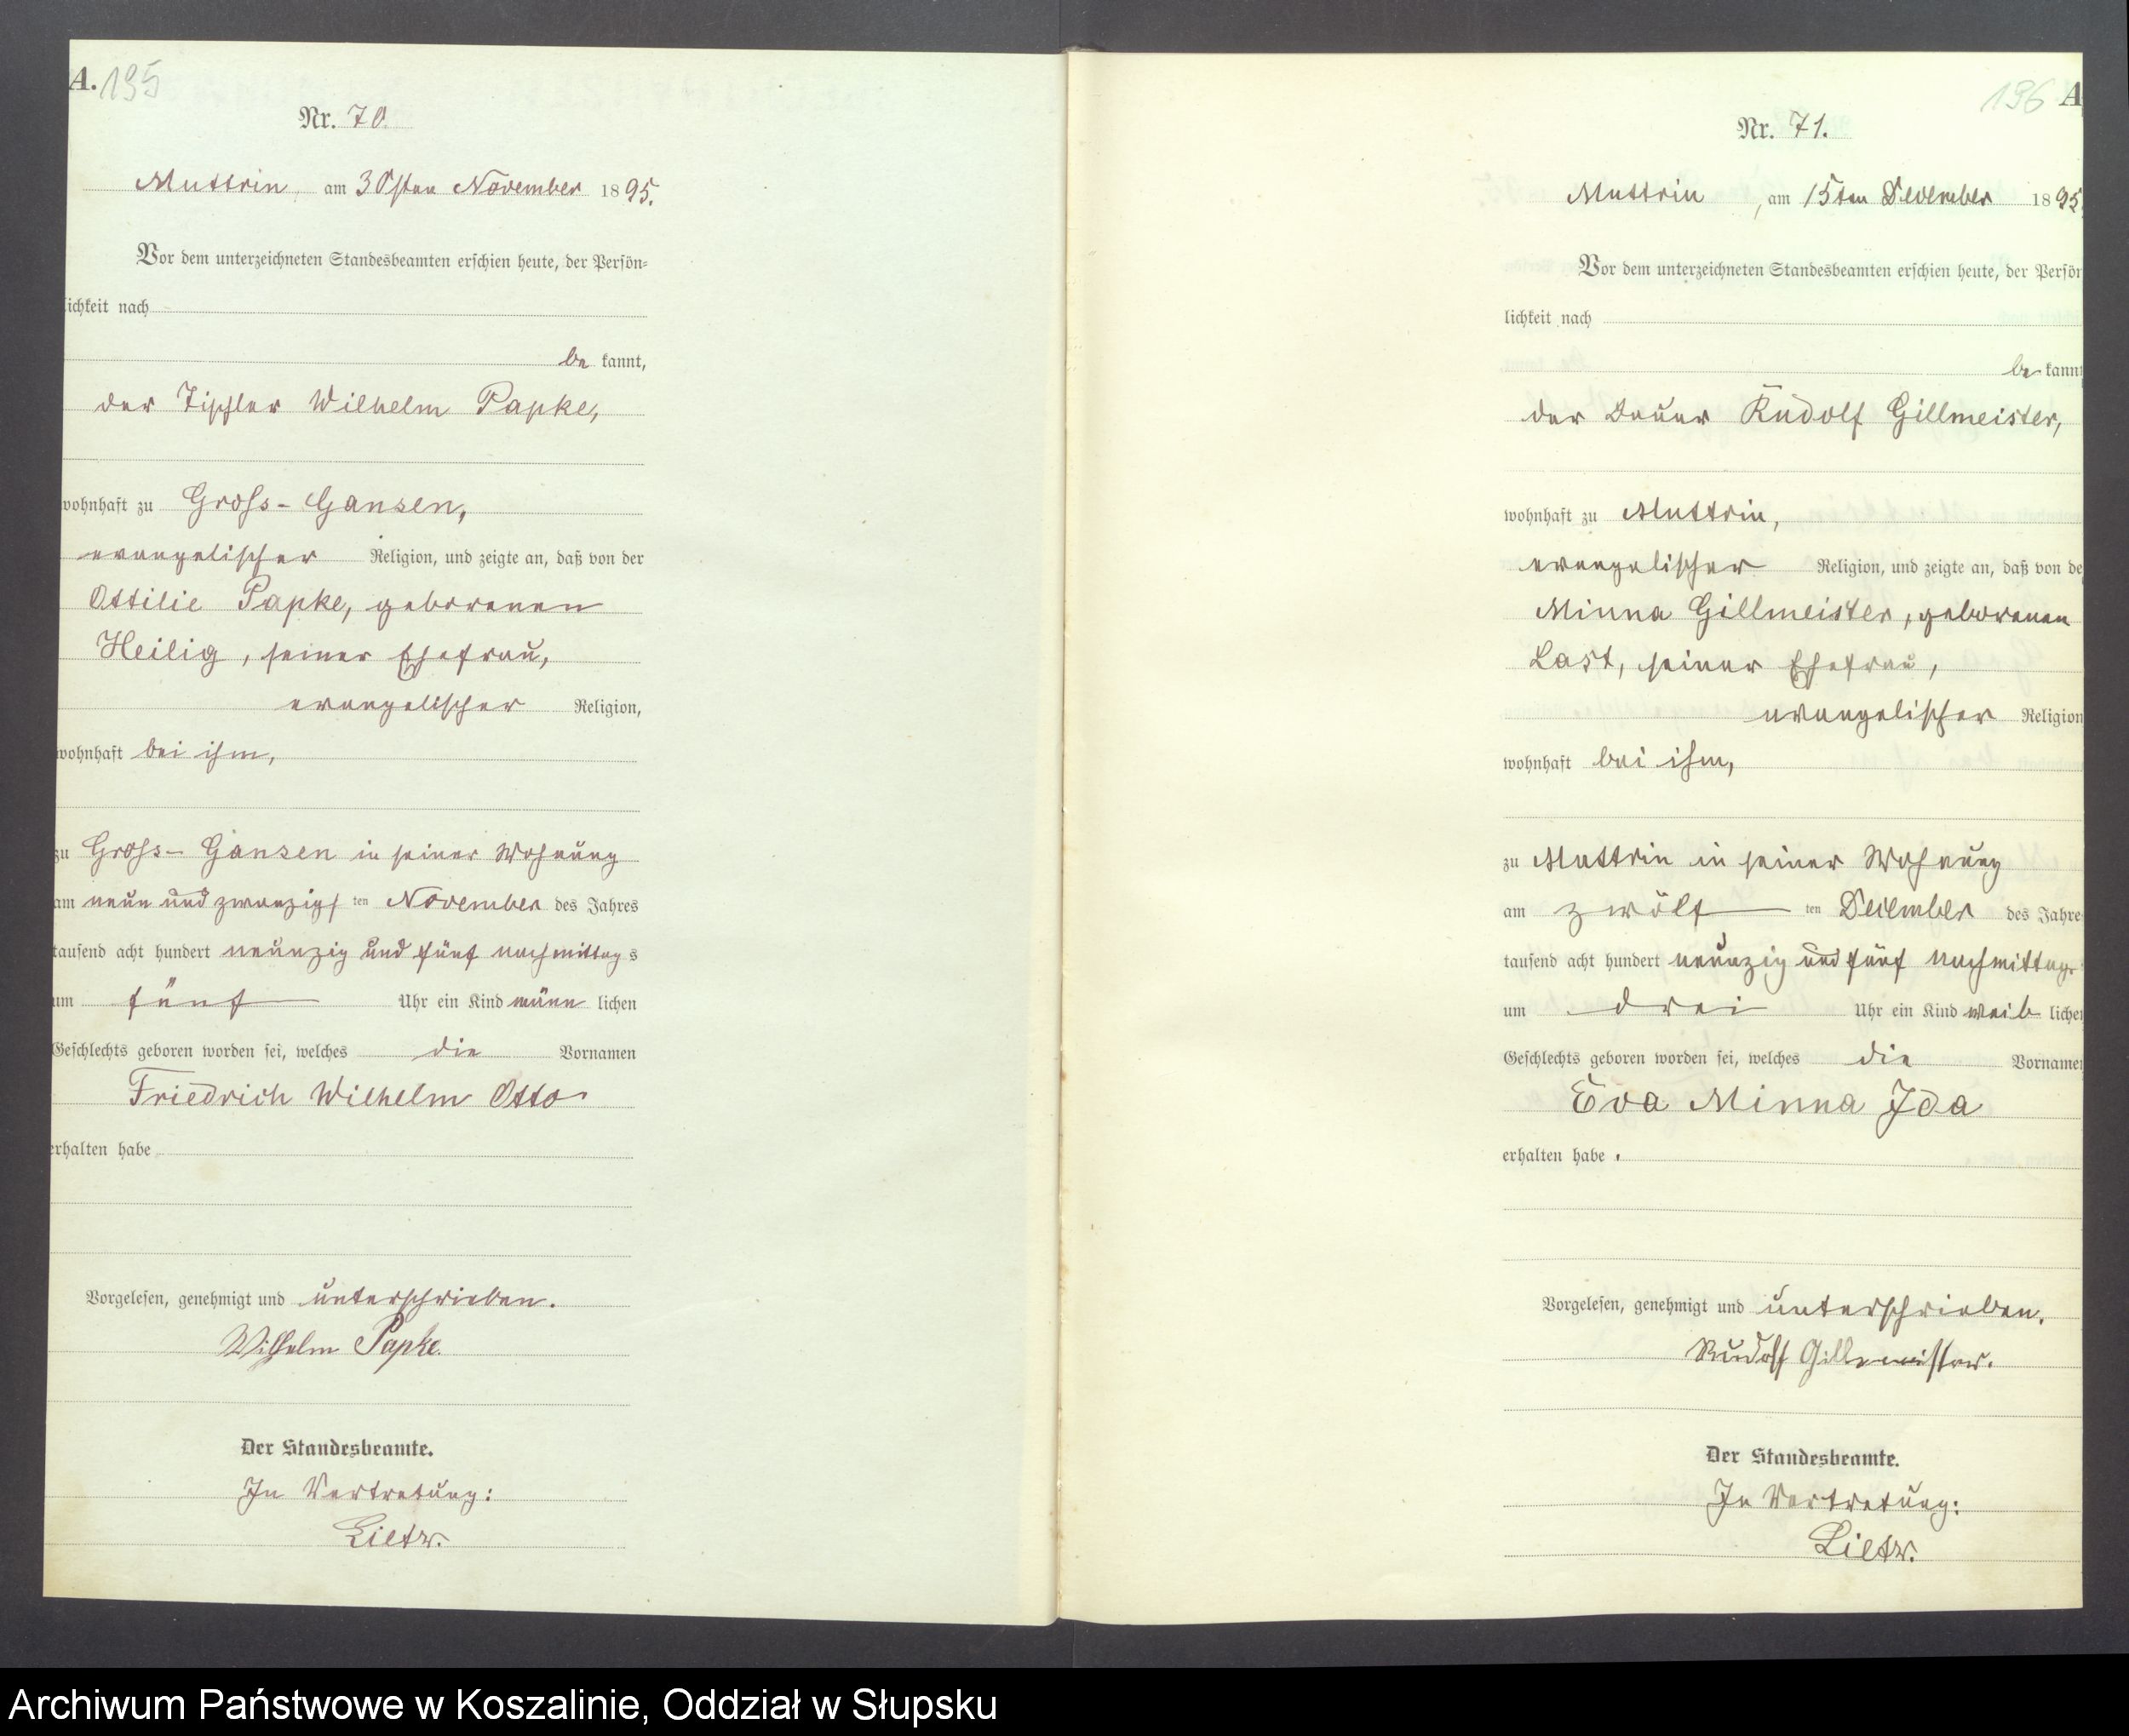 A. 195
Nr. 70.
Muttrin, am 30sten November 1895.
Vor dem unterzeichneten Standesbeamten erschien heute, der Persön-
lichkeit nach
be kannt,
der Tischler Wilhelm Papke,
wohnhaft zu Gross-Gansen,
evangelischer Religion, und zeigte an, daß von der
Ottilie Papke, geborenen
Heilig, seiner Ehefrau,
evangelischer Religion,
wohnhaft bei ihm,
zu Gross-Gansen in seiner Wohnung
am neun und zwanzigsten November des Jahres
tausend acht hundert neunzig und fünf nachmittags
um fünf Uhr ein Kind männlichen
Geschlechts geboren worden sei, welches die Vornamen
Friedrich Wilhelm Otto
erhalten habe
Vorgelesen, genehmigt und unterschrieben.
Wilhelm Papke.
Der Standesbeamte.
In Vertretung:
196 A
Nr. 71.
Muttrin, am 15ten Dezember 1895
Vor dem unterzeichneten Standesbeamten erschien heute, der Persön
lichkeit nach
be kannt
der Bauer Rudolf Gillmeister,
wohnhaft zu Muttrin,
evangelischer Religion, und zeigte an, daß von de
Minna Gillmeister, geborenen
Last, seiner Ehefrau,
evangelischer Religion
wohnhaft bei ihm,
zu Muttrin in seiner Wohnung
am zwölf ten Dezember des Jahre
tausend acht hundert neunzig und fünf nachmittags
um drei Uhr ein Kind weib lichen
Geschlechts geboren worden sei, welches die Vornamen
Eva Minna Ida
erhalten habe.
Vorgelesen, genehmigt und unterschrieben.
Rudolf Gillmeister.
Der Standesbeamte.
In Vertretung:
Archiwum Państwowe w Koszalinie, Oddział w Słupsku